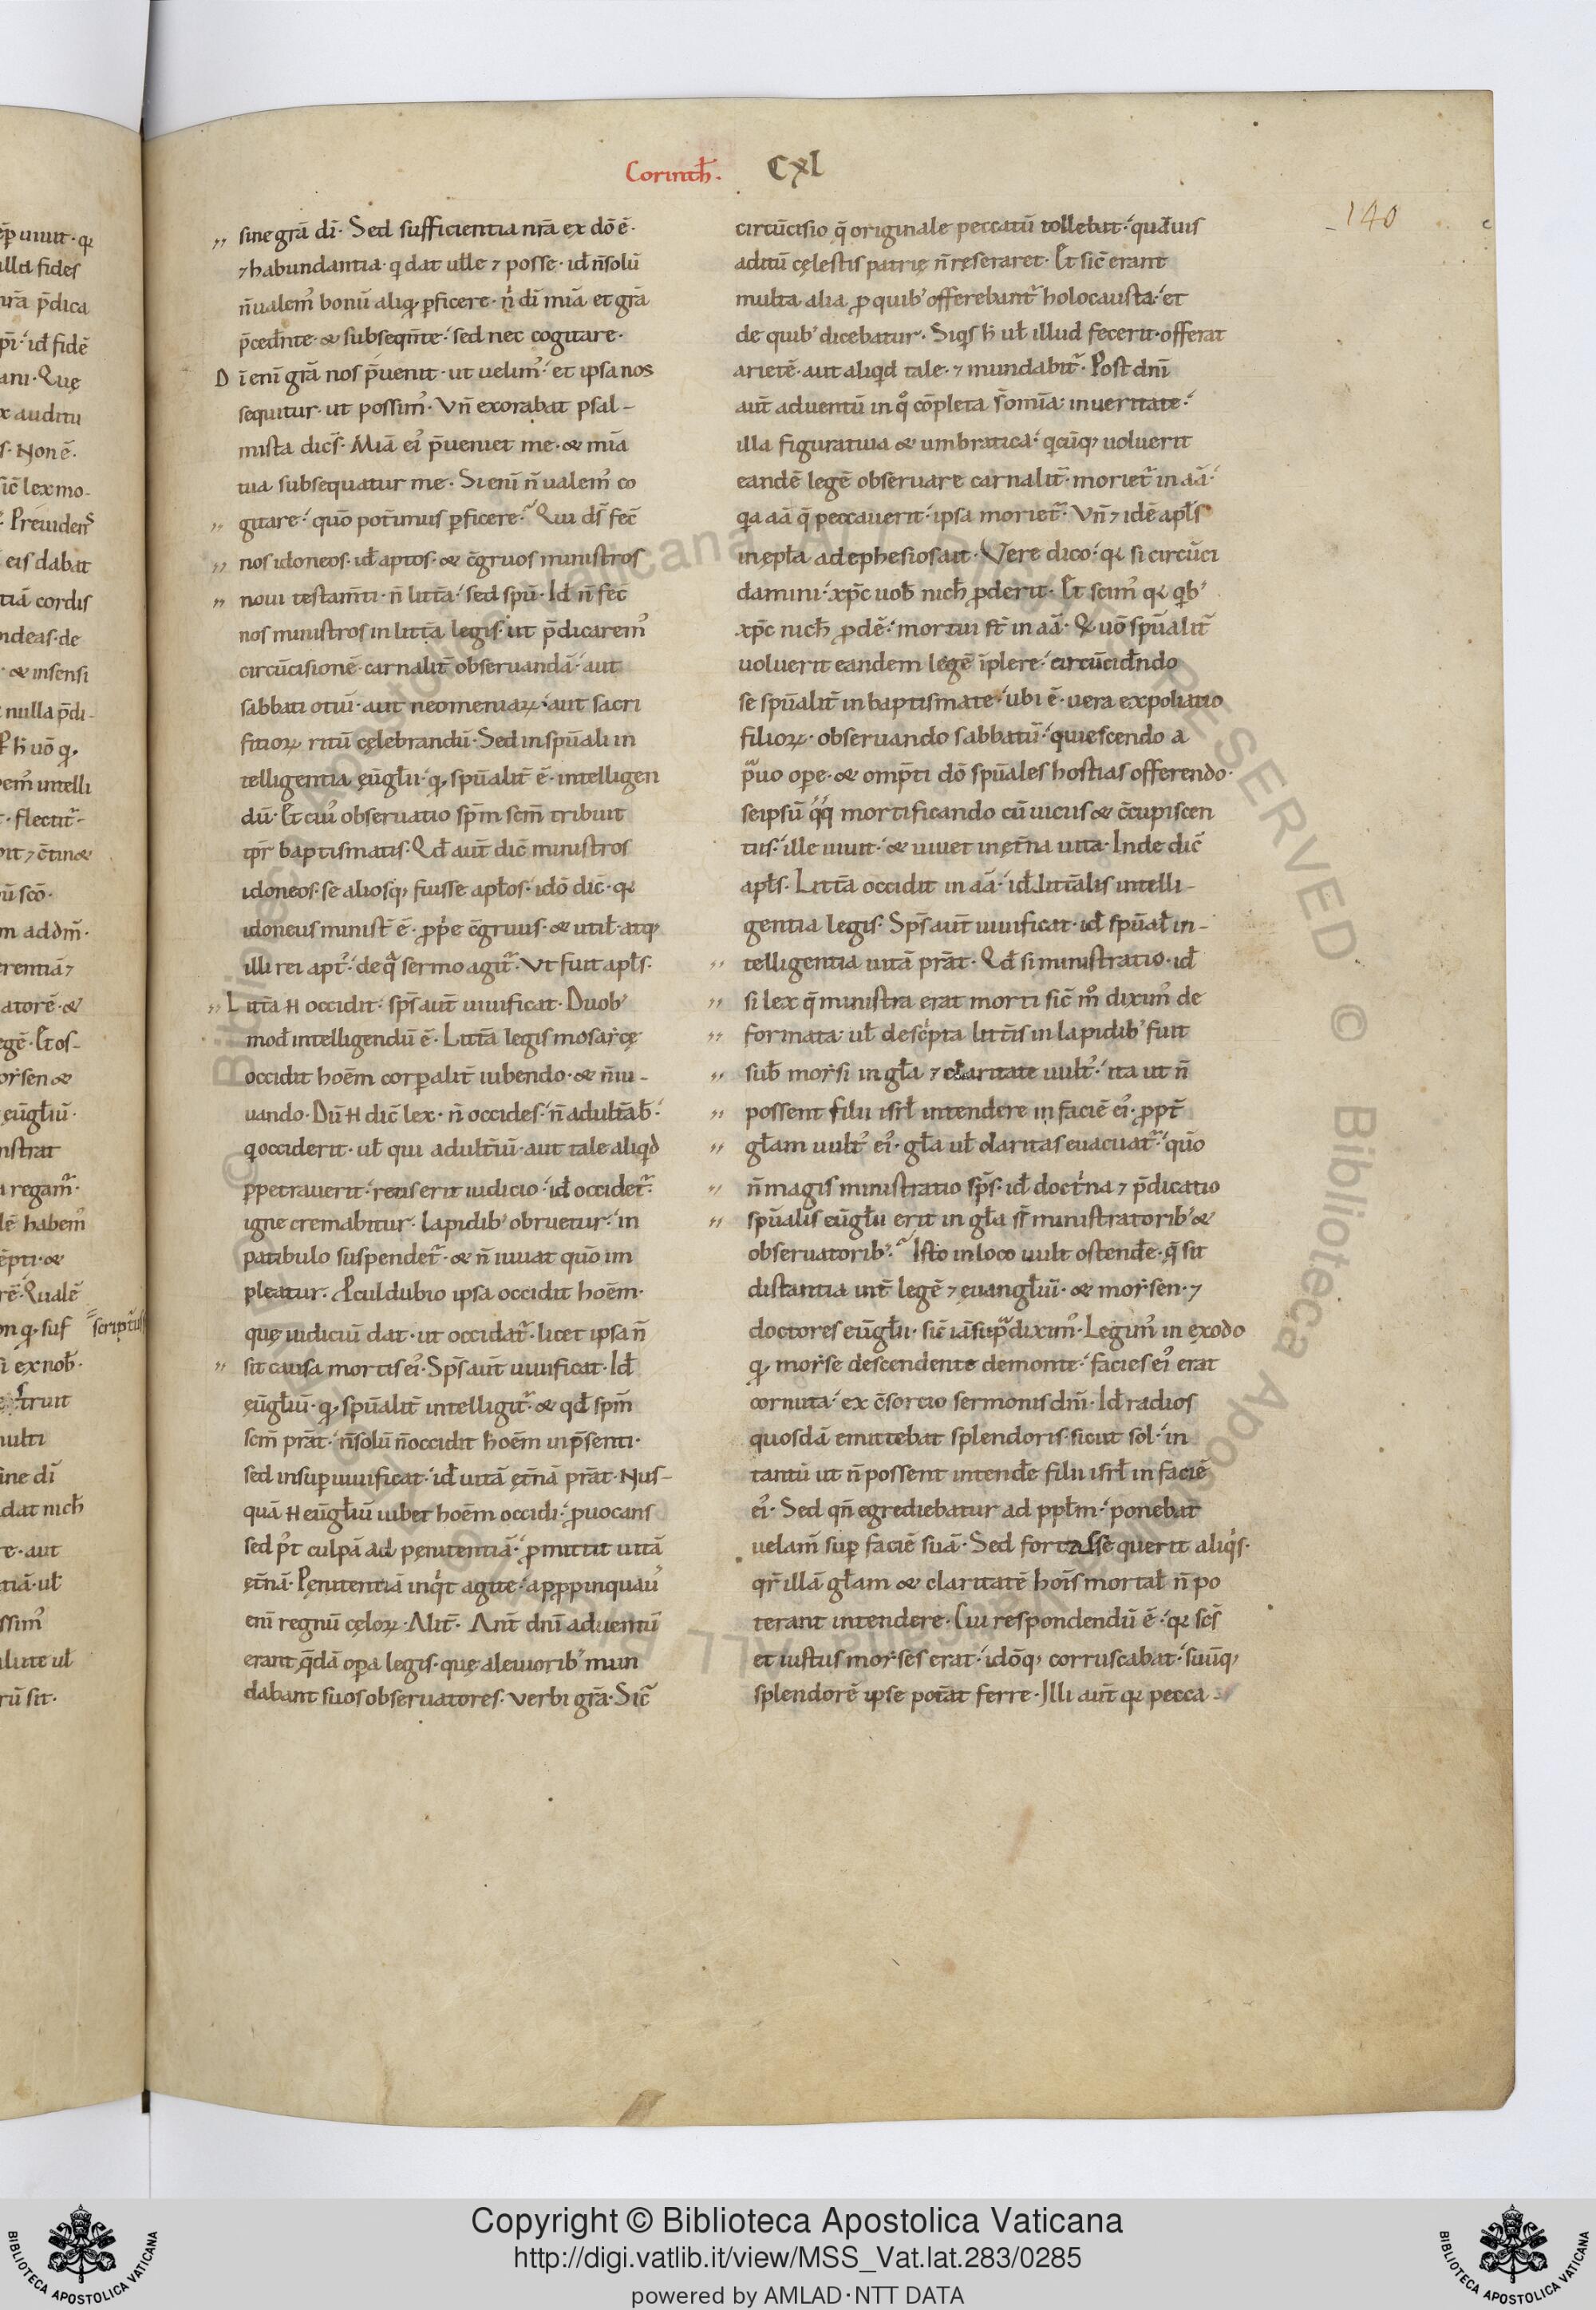 Corinth̄. CXl
140
sine grā di᷑. Sed sufficientia nr̄a ex dō ē.
⁊ habundantia. qi dat uelle ⁊ posse. id̄ n̄ solū
n̄ ualem᷒ bonū aliqͥ ꝑficere. n̄ dī mīa et gr̄a
p̄cedn̄te & subseqn̄te. sed nec cogitare.
Dī enī grā nos p̄uenit. ut uelim᷒. et ipsa nos
sequitur. ut possim᷒. Vn̄ exorabat psal-
mista dic̄s. Mīa ei᷒ p̄ueniet me. & mīa
tua subsequatur me. Si enī n̄ ualem᷒ co
gitare. quō poterimus ꝑficere. Qui ds̄ fec̄
nos idoneos. id̄ aptos. & c̄gruos ministros
noui testam̄ti. n̄ litt̄a. sed sp̄u. Id̄ n̄ fec̄
nos ministros in litt̄a legis. ut p̄dicarem᷒
circūcisionē carnalit̄ obseruandā. aut
sabbati otiū. aut neomeniaꝝ. aut sacri
fitioꝝ ritū cęlebrandū. Sed in sp̄uali in
telligentia eūgl̄ii. qͥ sp̄ualit̄ ē intelligen
dū. Et cui᷒ obseruatio sp̄m sc̄m tribuit
ip̄r baptismatis. Qd̄ aut̄ dic̄ ministros
idoneos. se aliosq; fuisse apl̄os. idō dic̄. qr
idoneus minist̄ ē. ꝓpͥe c̄gruus. & util̄. atq;
illi rei apt᷒. de qͣ sermo agit᷑. Vt fuit apl̄s.
Litt̄a n̄ occidit. sp̄s aut̄ uiuificat. Duob᷒
mod̄ intelligendū ē. Litt̄a legis mosaicę
occidit hoēm corꝑalit̄ iubendo. & n̄ iu-
uando. Dū n̄ dic̄ lex. n̄ occides. n̄ adult̄ab̄.
qi occiderit. ul̄ qui adult̄iū. aut tale aliqͥd
ꝑpetrauerit. reus erit iudicio. id̄ occidet᷑.
igne cremabitur. lapidib᷒ obruetur. in
patibulo suspendet᷑. & n̄ iuuat quō im
pleatur. Pculdubio ipsa occidit hoēm.
quę iudiciū dat. ut occidat᷑. licet ipsa n̄
sit causa mortis ei᷒. Sp̄s aut̄ uiuificat. Id̄
eūgl̄iū. qͥ sp̄ualit̄ intelligit᷑. & qd̄ sp̄m
sc̄m pr̄at. n̄ solū n̄ occidit hoēm in p̄senti.
sed insuꝑ uiuificat. id̄ uitā et̄nā pr̄at. Nus-
quā n̄ eūgl̄iū iubet hoēm occidi. ꝓuocans
sed pt̄ culpā ad penitentiā. ꝓmittit uitā
et̄nā. Penitentiā inqͥt agite. appropinquau᷒
enī regnū cęloꝝ. Alit̄. Ant̄ dnī aduentū
erant q̄dā oꝑa legis. quę aleuiorib᷒ mun
dabant suos obseruatores. verbi gr̄a. Sic̄
circūcisio q̄ originale peccatū tollebat. quāuis
aditū cęlestis patrię n̄ reseraret. Et sic̄ erant
multa alia ꝓ quib᷒ offerebant᷑ holocausta. et
de quib᷒ dicebatur. Siqͥs h̄ ul̄ illud fecerit. offerat
arietē. aut aliqͥd tale. ⁊ mundabit᷑. Post dnī
aut̄ aduentū in qͦ cōpleta s̄ omīa in ueritate.
illa figuratiua & umbratica. qicūq; uoluerit
eandē legē obseruare carnalit̄. moriet᷑ in aā.
qa aā q̄ peccauerit. ipsa moriet᷑. Vn̄ ⁊ idē apl̄s
in epl̄a ad ephesios ait. Vere dico. qr si circūci
damini. xp̄c uob̄ nich̄ ꝓderit. Et scim᷒ qr qͥb᷒
xp̄c nich̄ ꝓdē. mortui st̄ in aā. Quō sp̄ualit̄
uoluerit eandem legē īplere. circūcidn̄do
se sp̄ualit̄ in baptismate. ubi ē uera expoliatio
filioꝝ. obseruando sabbatū. quiescendo a
pͣuo oꝑe. & omp̄ti dō sp̄uales hostias offerendo.
seipsū qͦq mortificando cū uiciis & c̄cupiscen
tiis. ille uiuit. & uiuet in et̄na uita. Inde dic̄
apl̄s. Litt̄a occidit in aā. id̄ litt̄alis intelli-
gentia legis. Sp̄s aut̄ uiuificat. id̄ sp̄ual̄ in-
telligentia uitā pr̄at. Qd̄ si ministratio. id̄
si lex q̄ ministra erat morti sic̄ mͦ dixim᷒ de
formata ul̄ desc̄pta litt̄is in lapidib᷒ fuit
sub̄ moẏsi in gl̄a ⁊ claritate uult᷒. ita ut n̄
possent filii isrl̄ intendere in faciē ei᷒. ꝓpt̄
gl̄am uult᷒ ei᷒. gl̄a ul̄ claritas euacuat᷑. quō
n̄ magis ministratio sp̄s. id̄ doctͥna ⁊ p̄dicatio
sp̄ualis eūgl̄ii erit in gl̄a s̄ ministratorib᷒ &
obseruatorib᷒. Isto in loco uult ostendē. q̄ sit
distantia int̄ legē ⁊ euangl̄iū. & moẏsen. ⁊
doctores eūgl̄ii. sic̄ iā supͣ dixim᷒. Legim᷒ in exodo
qͥ moẏse descendente de monte. facies ei᷒ erat
cornuta. ex c̄sorcio sermonis dnī. Id̄ radios
quosdā emittebat splendoris. sicut sol. in
tantū ut n̄ possent intendē filii isrl̄ in faciē
ei᷒. Sed qn̄ egrediebatur ad ppl̄m. ponebat
uelam̄ suꝑ faciē suā. Sed fortasse querit aliqͥs.
qr̄ illā gl̄am & claritatē hoīs mortal̄ n̄ po
terant intendere. Cui respondendū ē. qr sc̄s
et iustus moẏses erat. idōq; corruscabat. suūq;
splendorē ipse pot̄at ferre. Illi aut̄ qr pecca
Copyright © Biblioteca Apostolica Vaticana
http://digi.vatlib.it/view/MSS_Vat.lat.283/0285
powered by AMLAD·NTT DATA